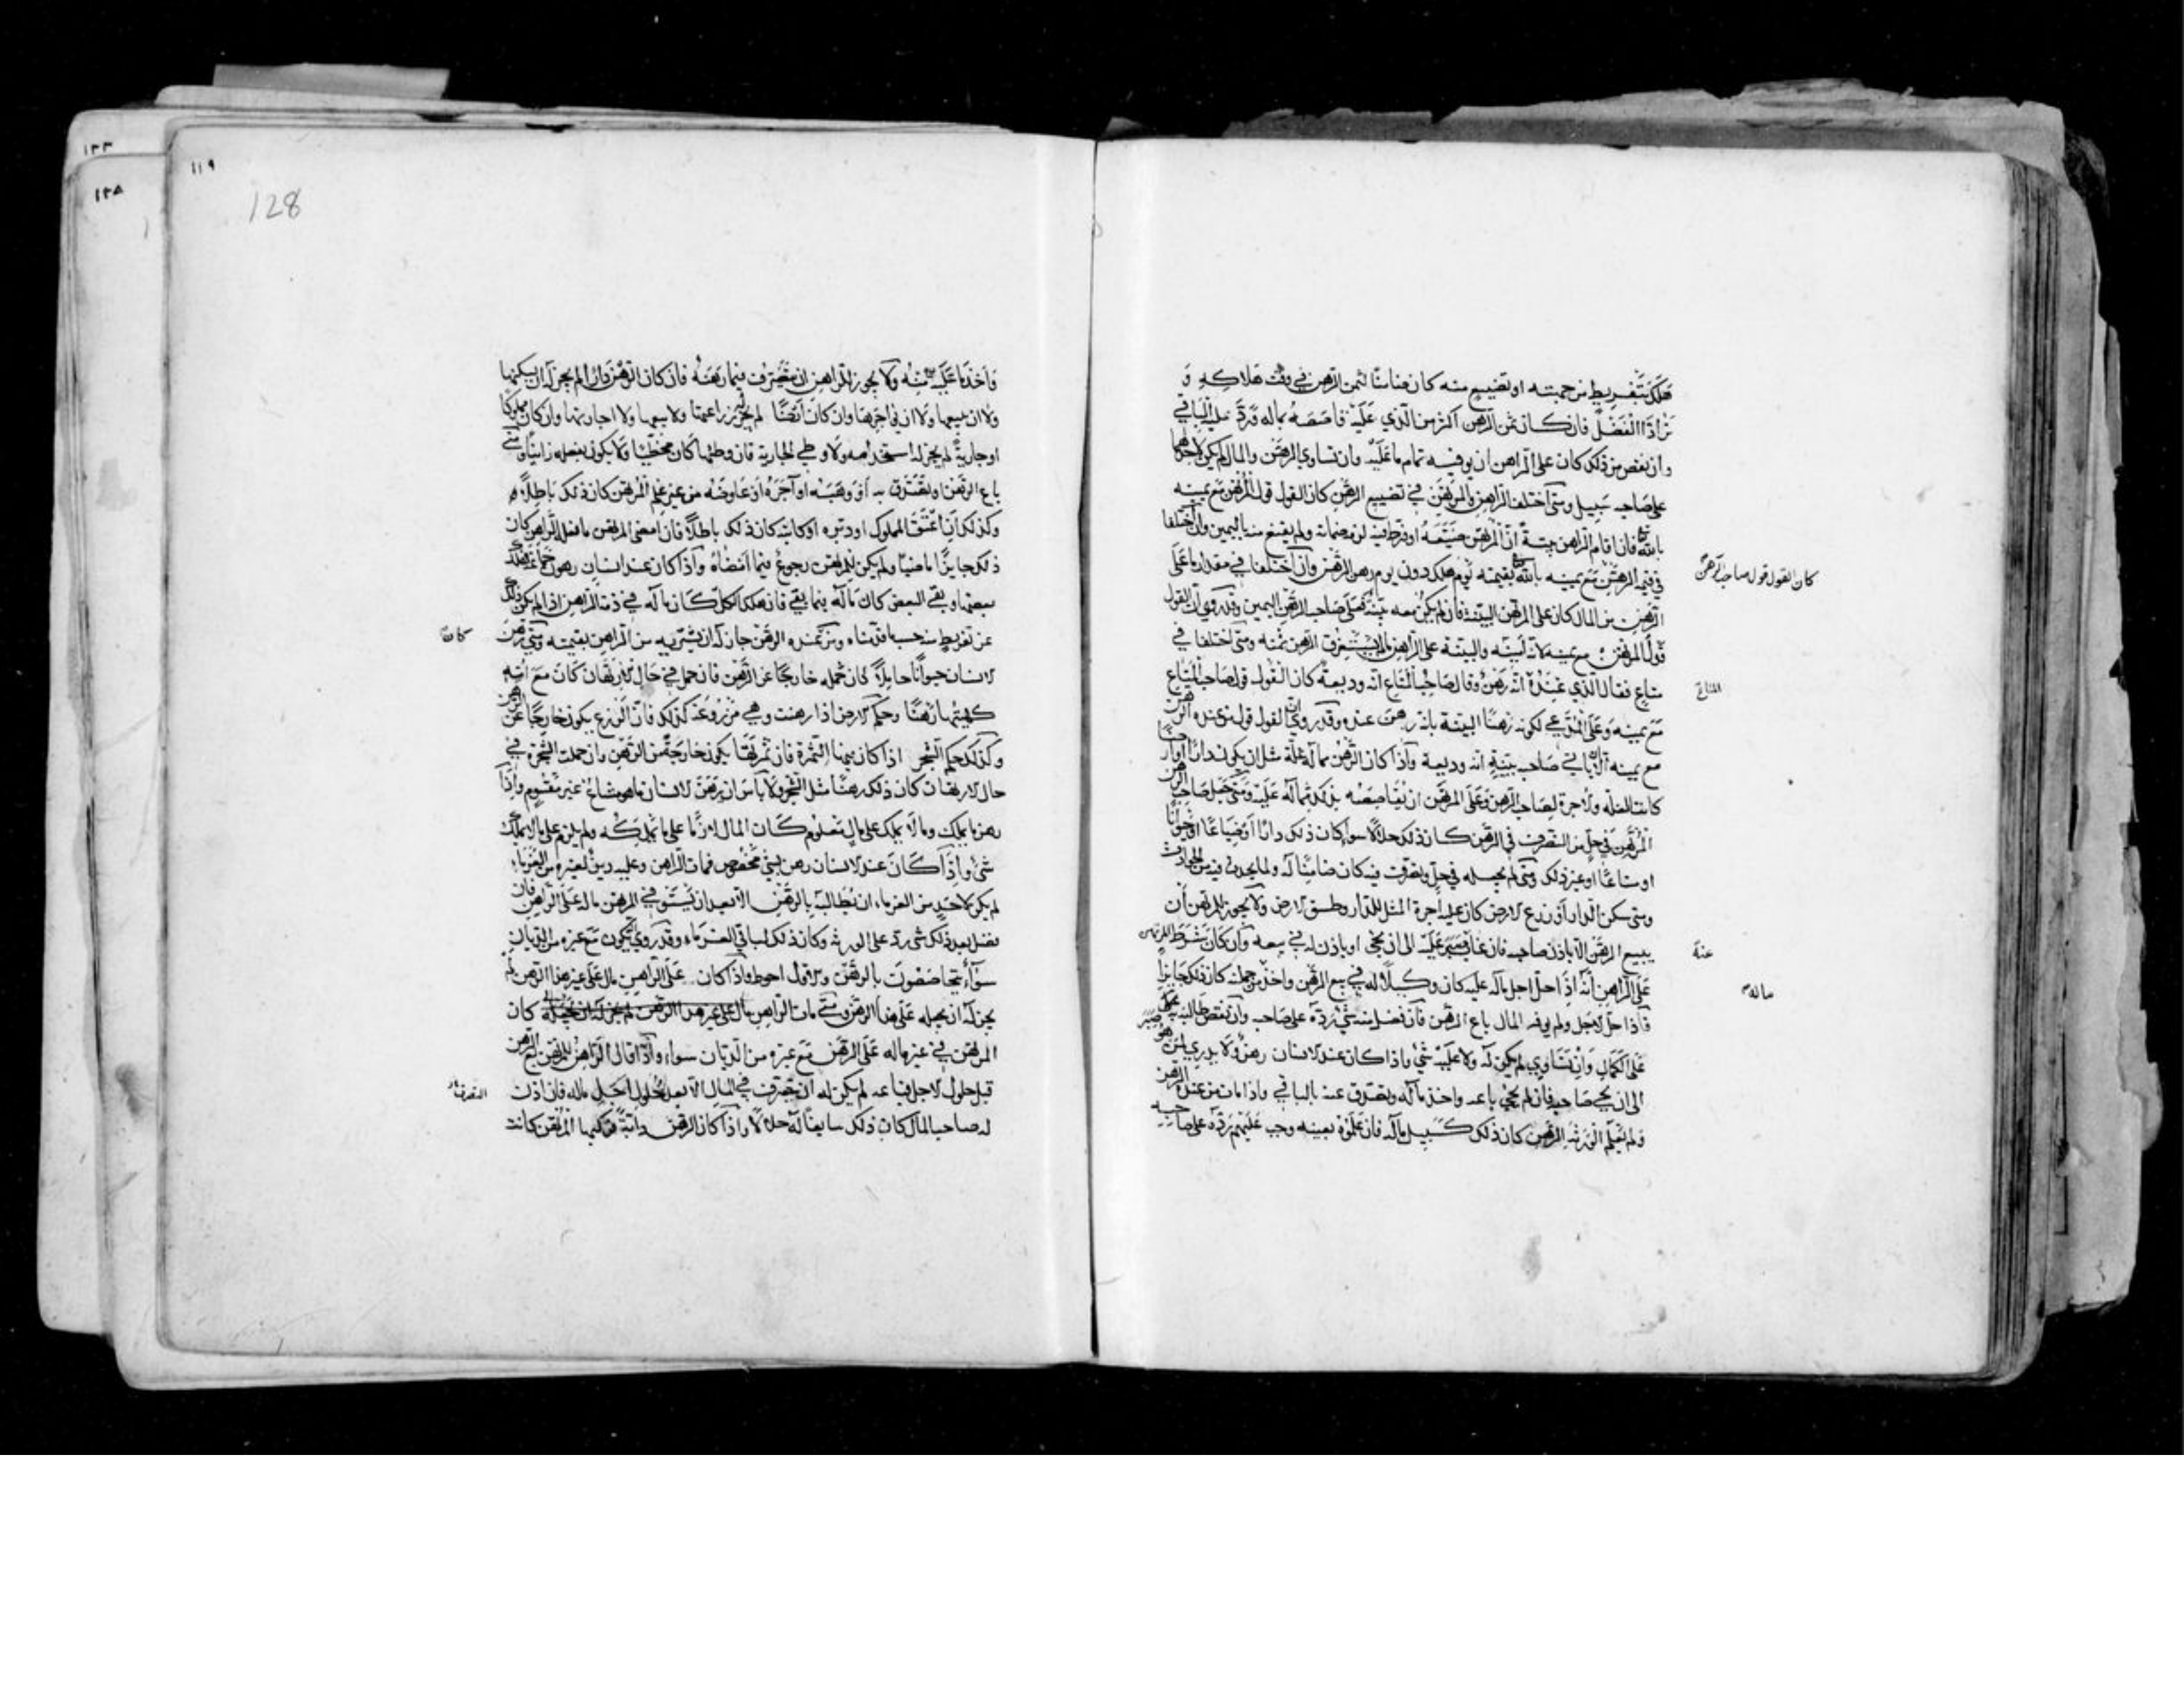 هلك بتفريط من جهته او تضييع منه كان ضامنا لثمن الرهن في وقت هلاكه و
ترادا الفضل فان كان ثمن الرهن اكثر من الذي عليه قاصصه بماله ورد عليه الباقي
وان نقص من ذلك كان على الراهن ان يوفيه تمام ما عليه وان تساوي الرهن والمال لم يكن لاحدهما
على صاحبه سبيل ومتى اختلف الراهن والمرتهن في تضييع الرهن كان القول قول المرتهن مع يمينه
بالله فان اقام الراهن بينة ان المرتهن ضيعه او فرط فيه لزمه ضمانه ولم يقنع منه باليمين وان اختلفا
كان القول قول صاحب الرهن
في قيمة الرهن مع يمينه بالله بقيمته يوم هلك دون يوم رهن الرهن وان اختلفا في مقدار ما على
الرهن من المال كان على المرتهن البينة فان لم يكن معه بينة فعلى صاحب الرهن اليمين وقد روي ان القول
قول المرتهن مع يمينه لانه امينه والبينة على الراهن ما لم يستغرق الرهن ثمنه ومتى اختلفا في
متاع فقال الذي عنده انه رهن وقال صاحب المتاع انه وديعة كان القول قول صاحب المتاع
المتاع
مع يمينه وعلى المدعي لكونه رهنا البينة بانه رهن عنده وقد روي ان القول قول من عنده الرهن
مع يمينه الا ان ياتي صاحبه ببينة انه وديعة واذا كان الرهن مما له غلة مثل ان يكون دارا او ارضا
كانت الغلة والاجرة لصاحب الرهن وعلى المرتهن ان يقاصصه بذلك مما له عليه ومتى جعل صاحب الرهن
المرتهن في حل من التصرف في الرهن كان ذلك حلالا سواء كان ذلك دارا او ضياعا او حيوانا
او متاعا او غير ذلك ومتى لم يجعله في حل وتصرف فيه كان ضامنا له ولما يحدث فيه من الحوادث
ومتى سكن الدار او زرع الارض كان عليه اجرة المثل للدار وطسق الارض ولا يجوز للمرتهن ان
يبيع الرهن الا باذن صاحبه فان غاب صبر عليه الى ان يجي او ياذن له في بيعه وان كان شرط المرتهن
عنه
على الراهن انه اذا حل اجل ماله عليه كان وكيلا له في بيع الرهن واخذ من جملته كان ذلك جايزا
ماله
فاذا حل الاجل ولم يوفه المال باع الرهن فان فضل منه شي رده على صاحبه وان نقص طالبه به
على الكمال وان تساوي لم يكن له ولا عليه شي واذا كان عند الانسان رهن ولا يدري لمن هو صبر
الى ان يجي صاحبه فان لم يجي باعه واخذ ماله وتصدق عنه بالباقي واذا مات من عنده الرهن
ولم تعلم الورثة الرهن كان ذلك كسبيل ماله فان علموه بعينه وجب عليهم رده على صاحبه
١١٩
128
١٣٣
١٣٨
واخذ ما عليه منه ولا يجوز للراهن ان يتصرف فيما رهنه فان كان الرهن دارا لم يجز له ان يسكنها
ولا ان يبيعها ولا ان يؤاجرها وان كان ارضا لم يجز له زراعتها ولا بيعها ولا اجارتها وان كان مملوكا
او جارية لم يجز له استخدامه ولا وطي الجارية فان وطئها كان مخطئا ولا يكون بفعله زانيا ومتى
باع الرهن او تصدق به او وهبه او آجره او عاوضه من غير علم المرتهن كان ذلك باطلا
وكذلك ان اعتق المملوك او دبره او كاتبه كان ذلك باطلا فان امضى المرتهن ما فعله الراهن كان
ذلك جايزا ماضيا ولم يكن للمرتهن رجوع فيما امضاه واذا كان عند انسان رهون جماعة فهلك
بعضها وبقي البعض كان ماله فيما بقي فان هلك الكل كان ماله في ذمة الراهن اذا لم يكن ذلك
عن تفريط منه حسب ما قدمناه ومن عنده الرهن جاز له ان يشتريه من الراهن بقيمته ومتى رهن
كان
الانسان حيوانا حاملا كان حمله خارجا عن الرهن فان حمل في حال الارتهان كان مع امه
كهيئتها رهنا وحكم الارض اذا رهنت وهي مزروعة كذلك فان الزرع يكون خارجا عن الرهن
وكذلك حكم الشجر اذا كان فيها الثمرة فان ثمرتها يكون خارجة من الرهن وان حملت الشجرة في
حال الارتهان كان ذلك رهنا مثل الشجر ولا باس ان يرهن الانسان ما هو مشاع غير مقسوم واذا
رهن ما يملك وما لا يملك على مال معلوم كان المال لازما على ما يملكه ولم يلزم على ما لا يملك
شي واذا كان عند الانسان رهن بشي مخصوص فمات الراهن وعليه دين لغيره من الغرماء
لم يكن لاحد من الغرماء ان يطالبه بالرهن الا بعد ان يستوفي المرتهن ماله على الراهن فان
فضل بعد ذلك شي رد على الورثة وكان ذلك لباقي الغرماء وقد روي انه يكون مع غيره من الديان
سواء يتحاصصون بالرهن والاول احوط واذا كان على الراهن مال على غير هذا الرهن لم
يجز له ان يجعله على هذا الرهن ومتى مات الراهن كان
المرتهن في غير ماله على الرهن مع غيره من الديان سواء واذا قال الراهن للمرتهن بع الرهن
قبل حلول الاجل فباعه لم يكن له ان يتصرف في المال الا بعد حلول اجل ماله فان اذن
التصرف
له صاحب المال كان ذلك سايغا له حلالا واذا كان الرهن دابة فركبها المرتهن كانت